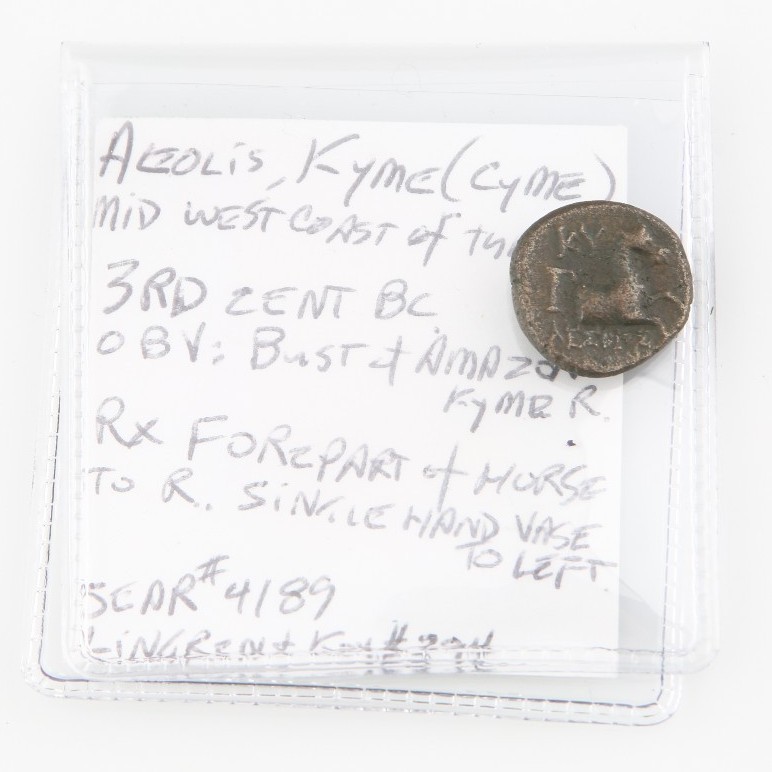 AEOLIS, KYME (CYME)
MID WEST COAST of
3RD CENT BC
OBV: BUST of AMAZON
KYME R.
Rx FOREPART of HORSE
TO R. SINGLE HAND VASE
TO LEFT.
SEAR # 4189
LINGREN &
KY